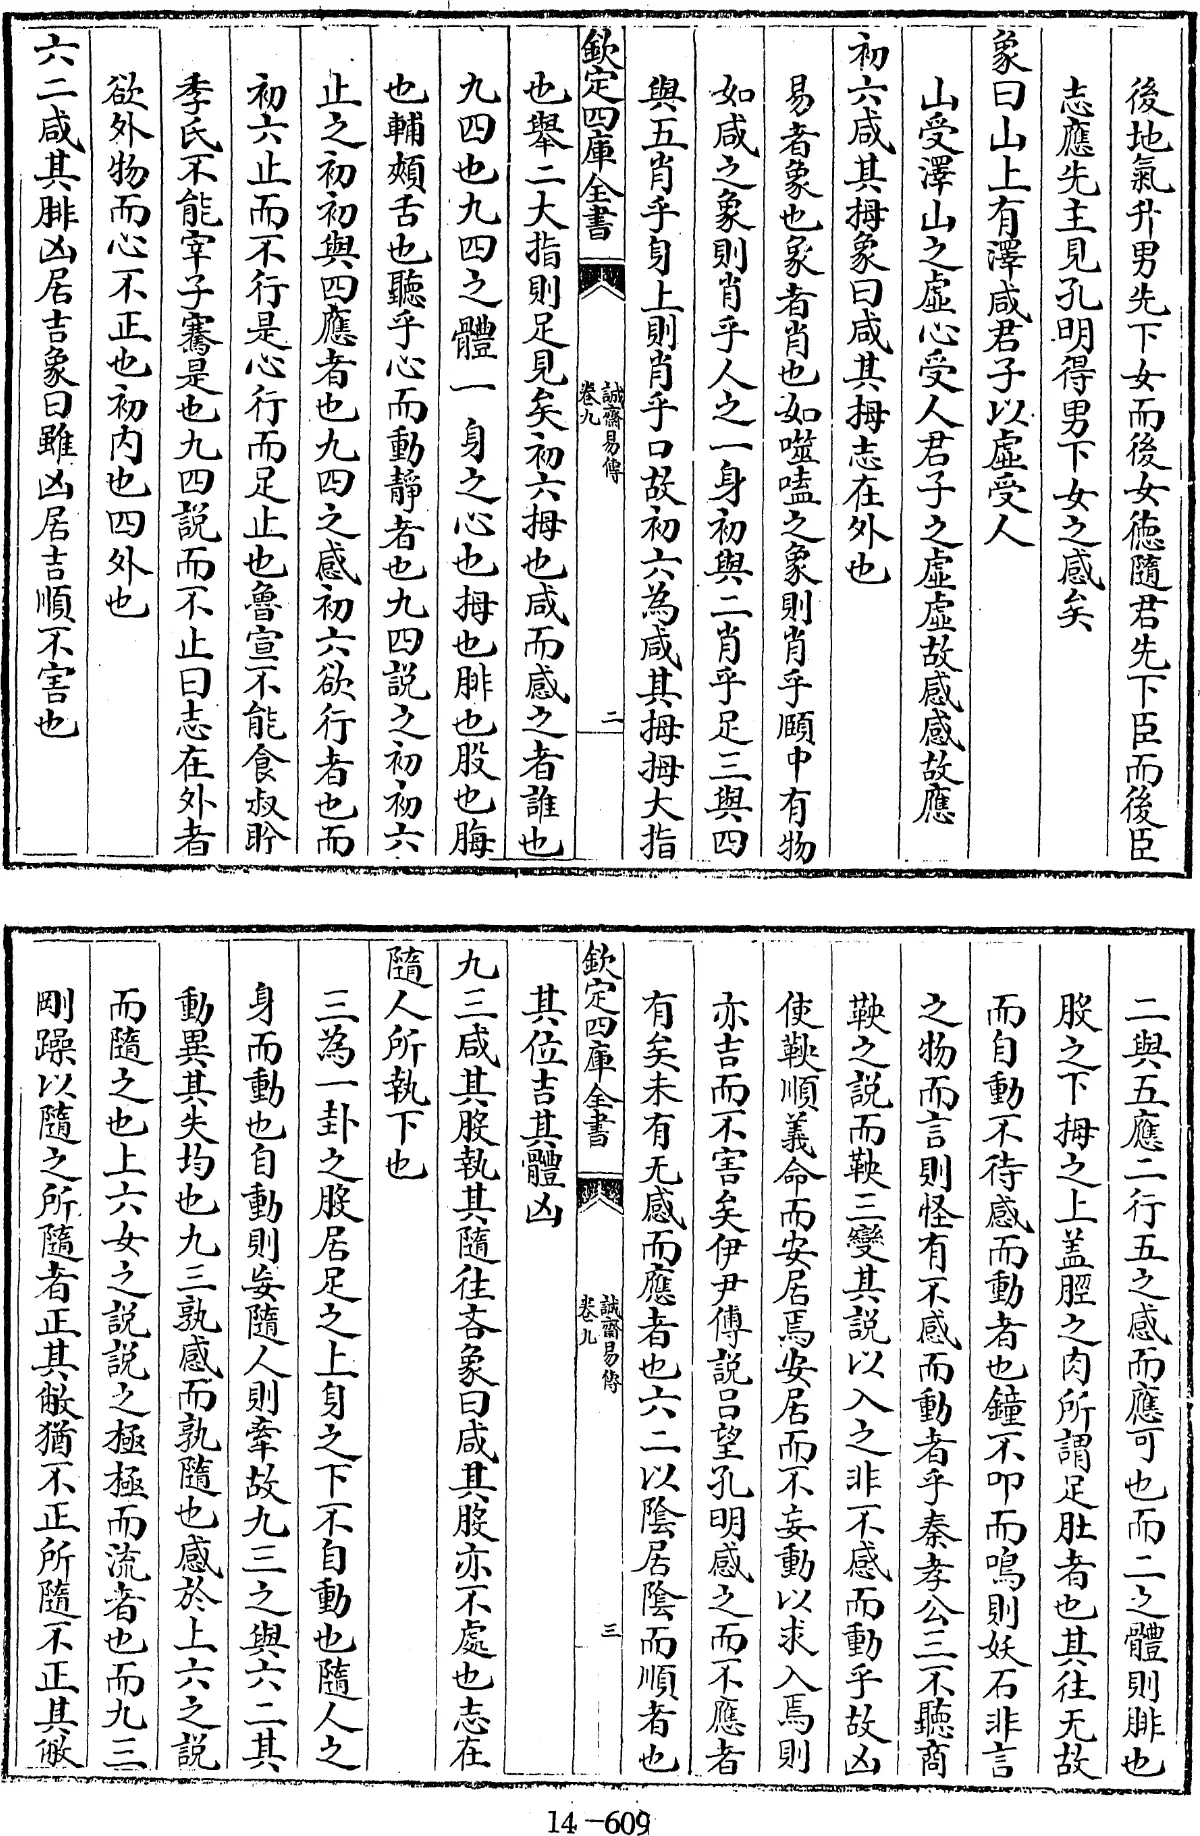 後地氣升男先下女而後女徳隨君先下臣而後臣
志應先主見孔明得男下女之感矣
象曰山上有澤咸君子以虛受人
山受澤山之虛心受人君子之虛虛故感感故應
初六咸其拇象曰咸其拇志在外也
易者象也象者肖也如噬嗑之象則肖乎頤中有物
如咸之象則肖乎人之一身初與二肖乎足三與四
與五肖乎身上則肖乎口故初六為咸其拇拇大指
欽定四庫全書
誠齋易傳
卷九
二
也舉二大指則足見矣初六拇也咸而感之者誰也
九四也九四之體一身之心也拇也腓也股也脢
也輔頰舌也聽乎心而動靜者也九四説之初初六
止之初初與四應者也九四之感初六欲行者也而
初六止而不行是心行而足止也魯宣不能食叔肸
季氏不能宰子騫是也九四説而不止曰志在外者
欲外物而心不正也初内也四外也
六二咸其腓凶居吉象曰雖凶居吉順不害也
二與五應二行五之感而應可也而二之體則腓也
股之下拇之上盖脛之肉所謂足肚者也其往无故
而自動不待感而動者也鐘不叩而鳴則妖石非言
之物而言則怪有不感而動者乎秦孝公三不聽商
鞅之説而鞅三變其説以入之非不感而動乎故凶
使鞅順義命而安居焉安居而不妄動以求入焉則
亦吉而不害矣伊尹傅説吕望孔明感之而不應者
有矣未有无感而應者也六二以陰居陰而順者也
欽定四庫全書
誠齋易傳
卷九
三
其位吉其體凶
九三咸其股執其隨往吝象曰咸其股亦不處也志在
隨人所執下也
三為一卦之股居足之上身之下不自動也隨人之
身而動也自動則妄隨人則牽故九三之與六二其
動異其失均也九三孰感而孰隨也感於上六之説
而隨之也上六女之説説之極極而流者也而九三
剛躁以隨之所隨者正其敝猶不正所隨不正其敝
14-609